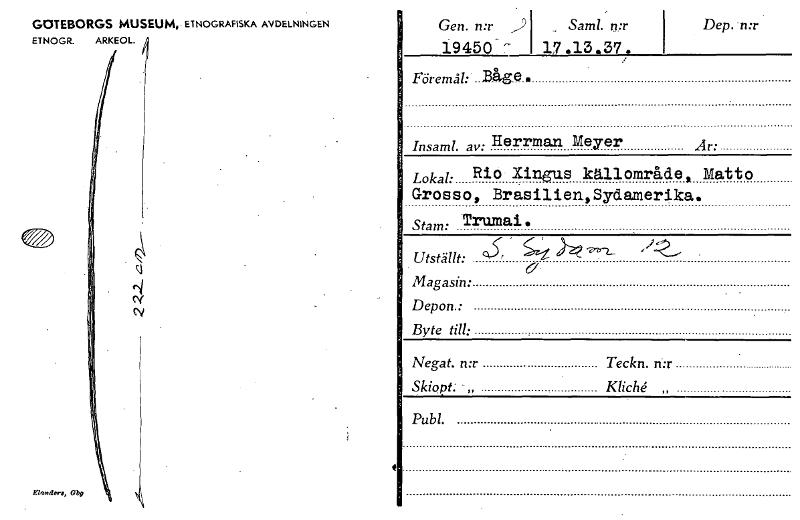 GÖTEBORGS MUSEUM, ETNOGRAFISKA AVDELNINGEN
ETNOGR. ARKEOL.
222 cm
Elanders, Gbg
Gen. n:r Saml. n:r Dep. n:r
19450 17.13.37.
Föremål: Båge.
Insaml. av: Herrman Meyer År:
Lokal: Rio Xingus källområde, Matto
Grosso, Brasilien,Sydamerika.
Stam: Trumai.
Utställt: S. Sydam 12
Magasin:
Depon.:
Byte till:
Negat. n:r Teckn. n:r
Skiopt. „ Kliché „
Publ.